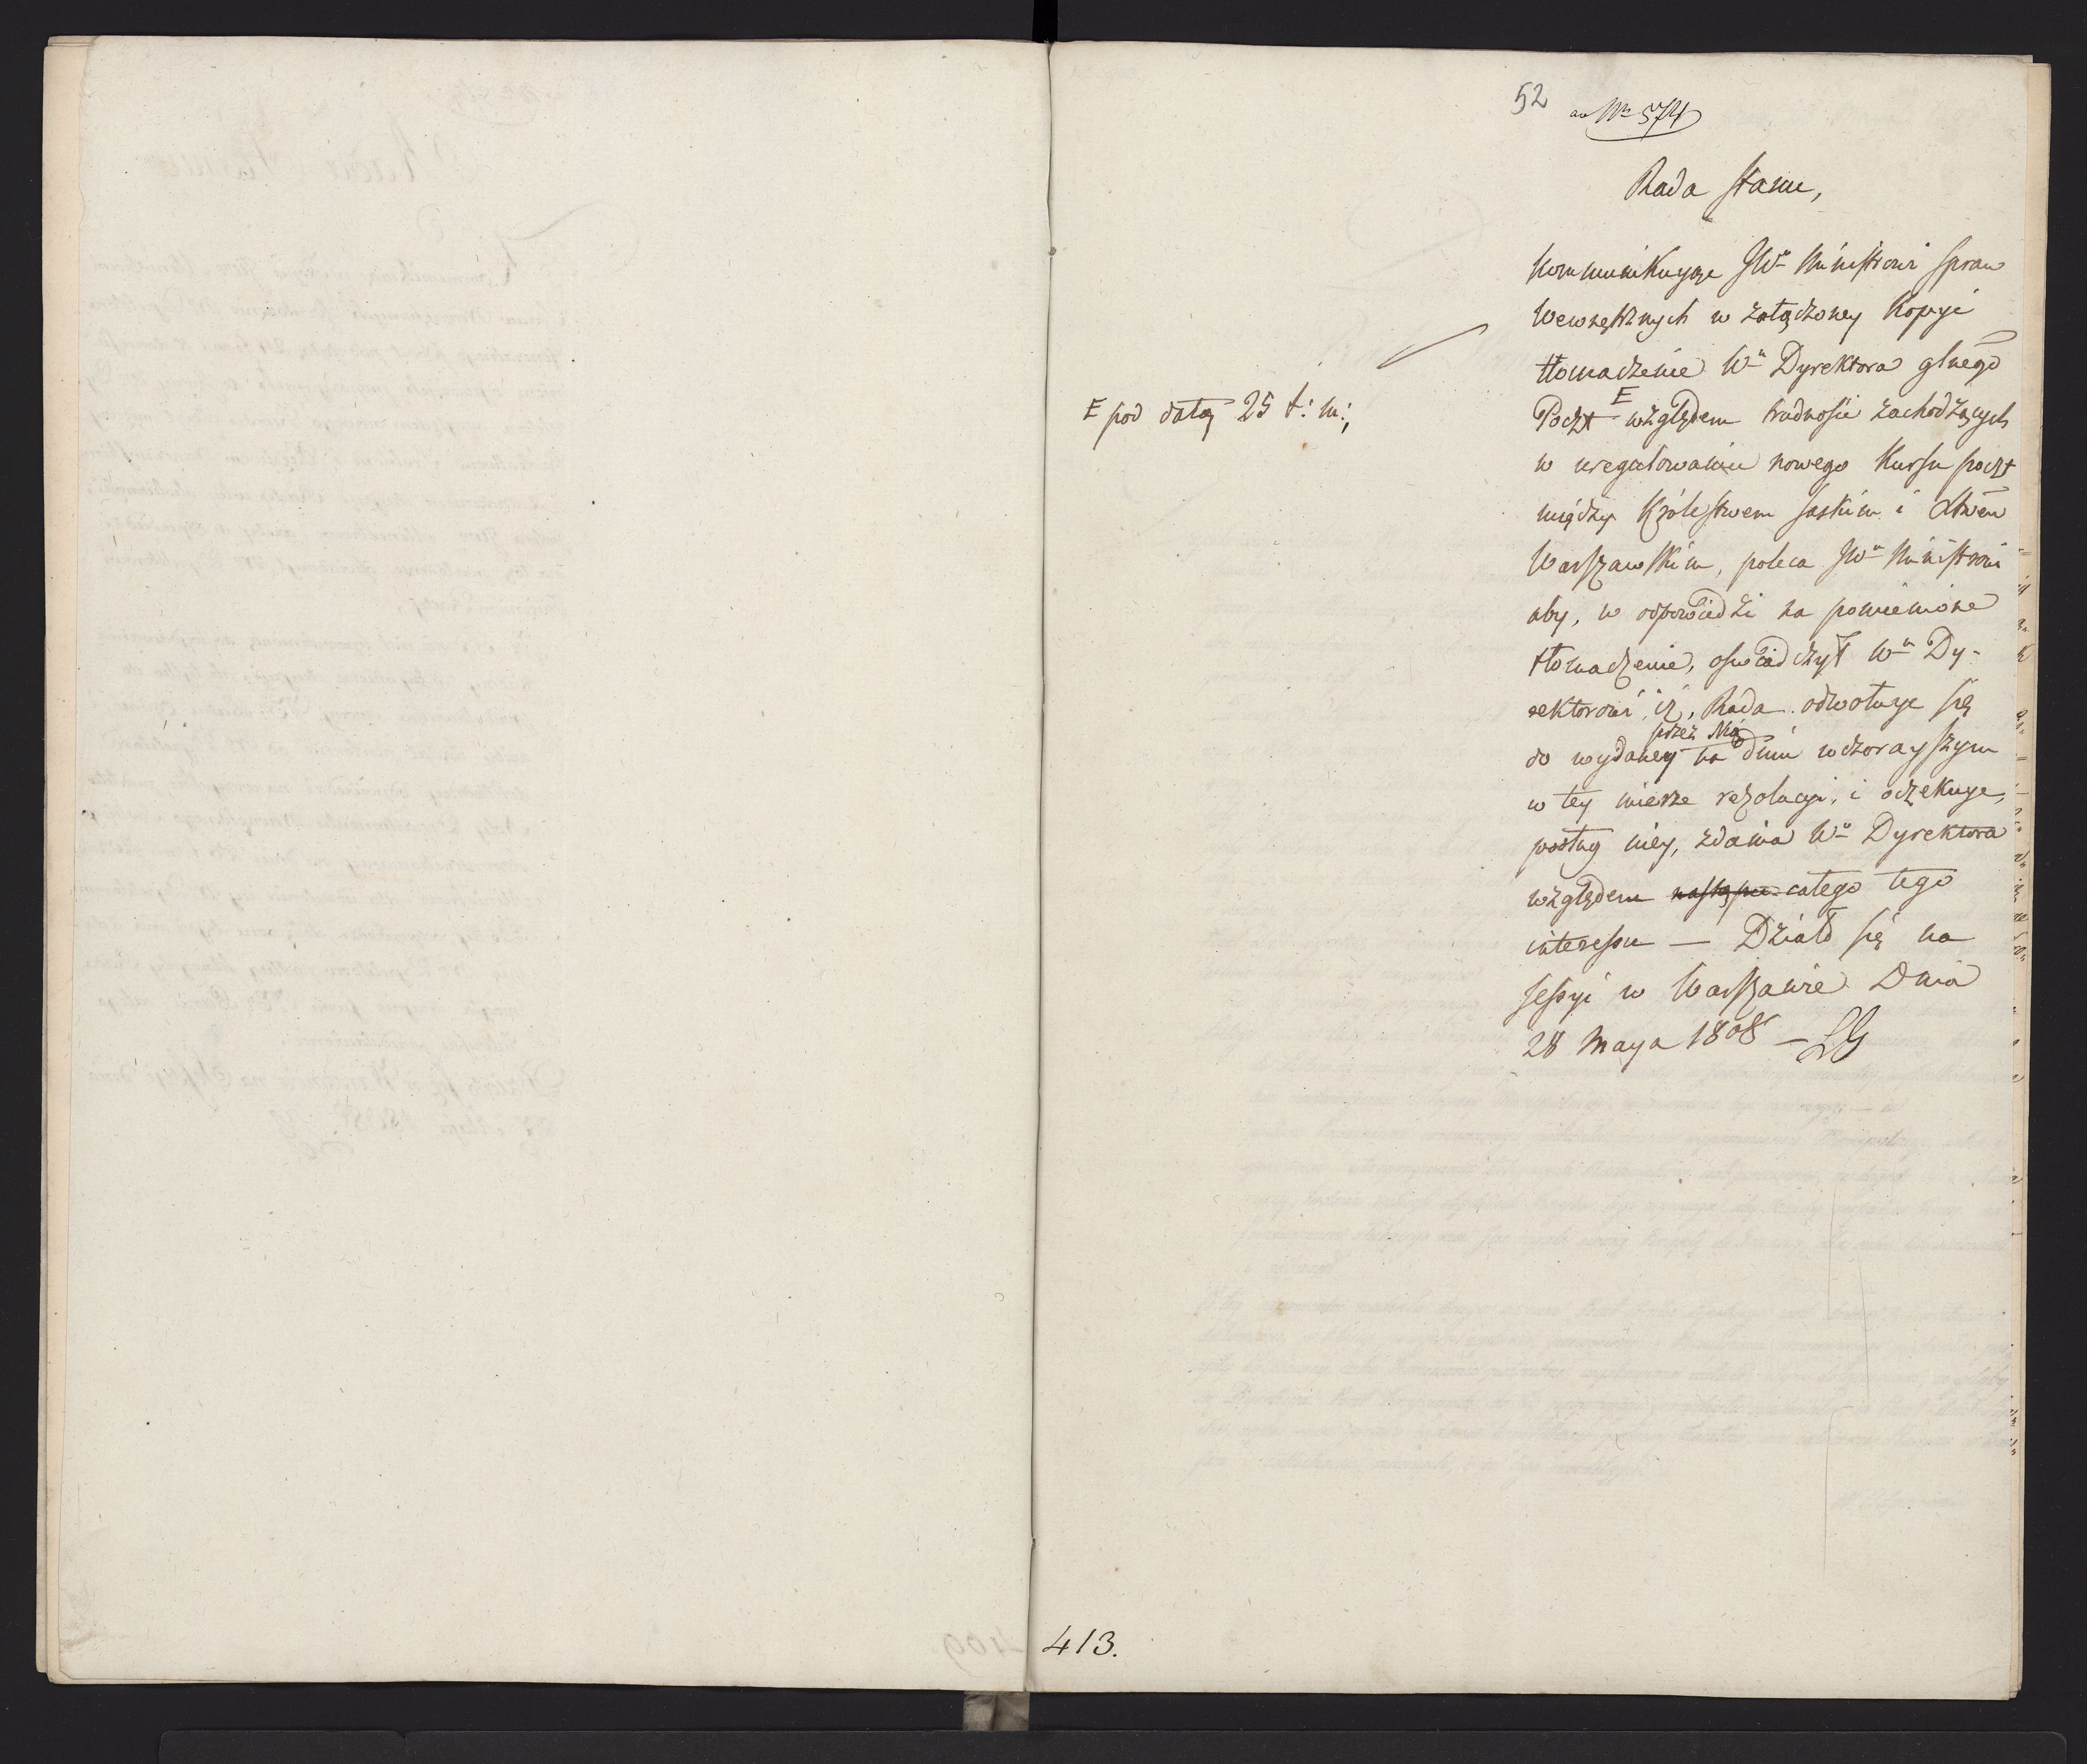 52
ad Nr 574
Rada Stanu,
kommunikuyąc JWu Ministrowi Spraw
Wewnętrznych w załączoney kopyi
tłomaczenie Wo Dyrektora glnego
E
Poczt względem trudności zachodzących
E pod datą 25 t: m:,
w uregulowaniu nowego kursu poczt
między Królestwem Saskim i Xtwem
Warszawskim, poleca JWu Ministrowi
aby, w odpowiedzi na pomienione
tłomaczenie, oświadczył Wu Dy-
rektorowi, iż, Rada odwołuye się
przez Nią
do wydaney na dniu wczorayszym
w tey mierze rezolucyi, i oczekuye,
podług niey, zdania Wo Dyrektora
względem całego tego
interessu — Działo się na
sessyi w Warszawie Dnia
28 Maya 1808 —
413.